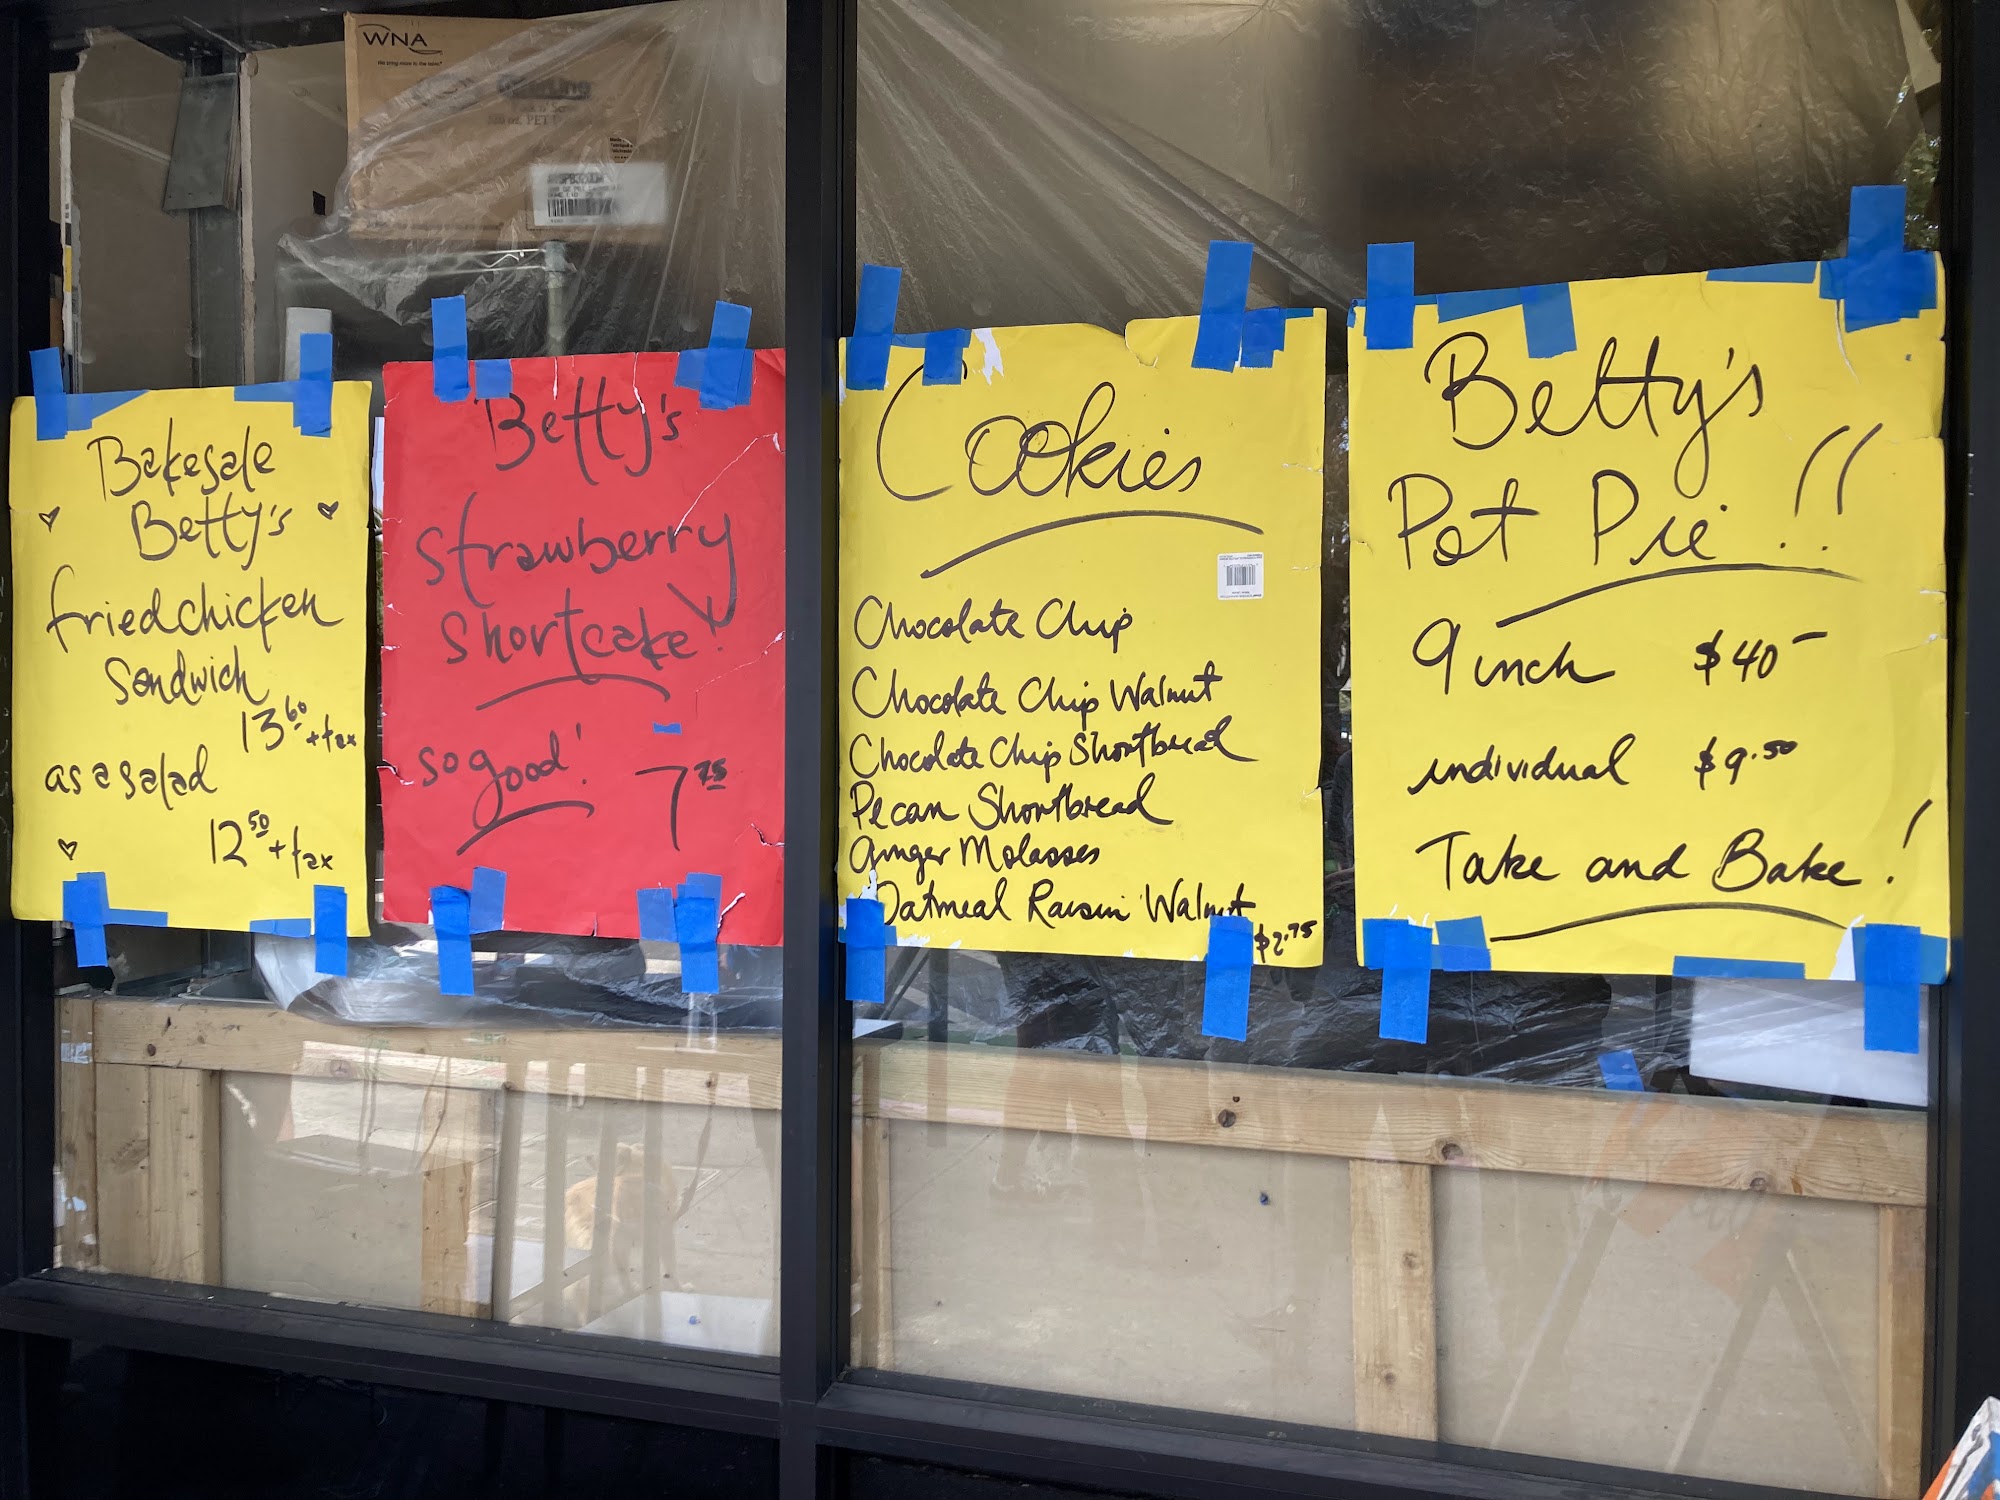 WNA
Bakesale
Betty's
fried chicken
sandwich
13 60 + tax
as a salad
12 50 + tax
Betty's
strawberry
shortcake!
so good! 7 75
Cookies
Chocolate Chip
Chocolate Chip Walnut
Chocolate Chip Shortbread
Pecan Shortbread
Ginger Molasses
Oatmeal Raisin Walnut
$2.75
Betty's
Pot Pie!!
9 inch $40-
individual $9.50
Take and Bake!